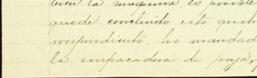 bien la maquina, es posible
quede concluido esta queh
respondiente, he mandado
la empacadora de paja,